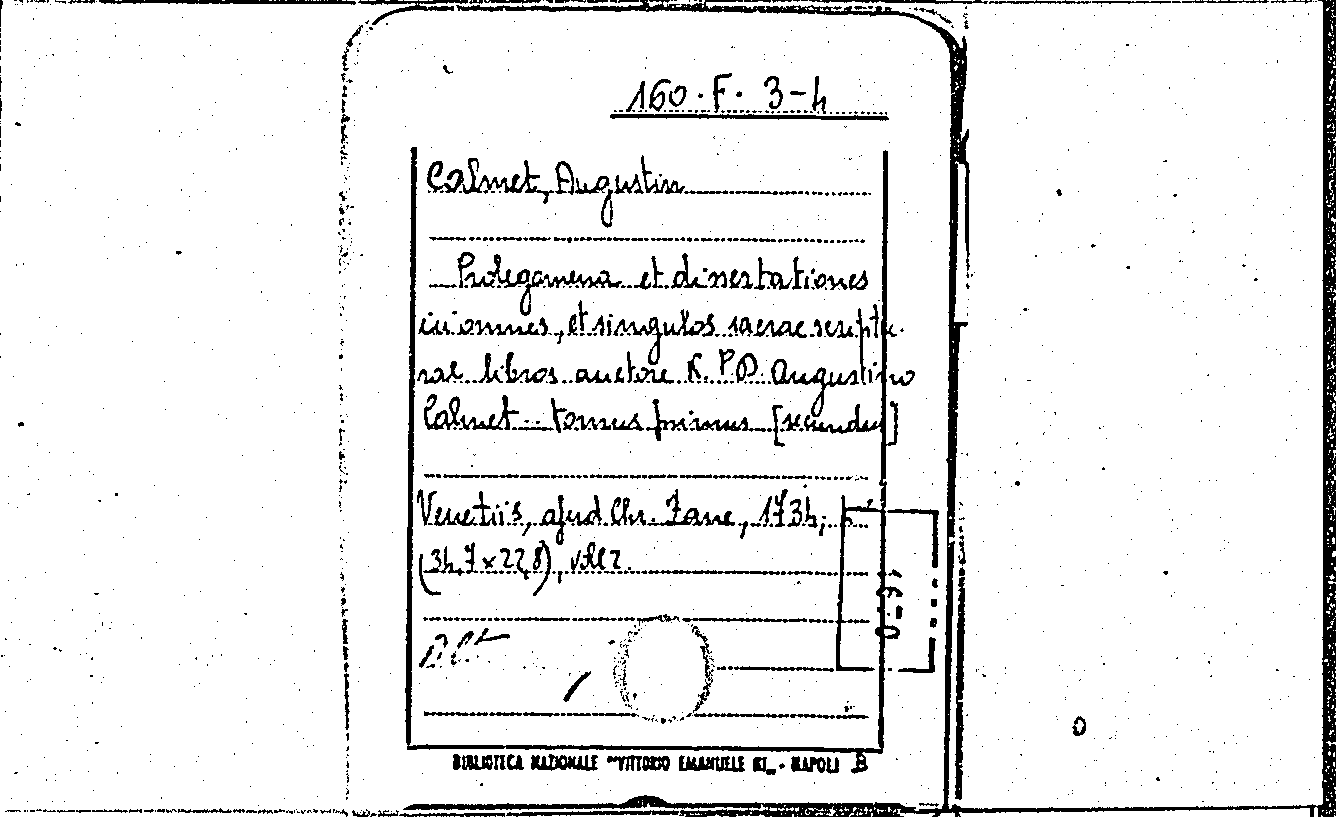 160.F. 3-4
Calmet, Augustin
Prolegomena et dissertationes
in omnes, et singulos sacrae scriptu-
rae libros auctore R. P. D. Augustino
Calmet.. tomus primus [secundus]
Venetiis, apud Chr. Zane, 1734;
(34,7x22,8), voll 2.
16-0
BIBLIOTECA NAZIONALE "VITTORIO EMANUELE III" - NAPOLI B
0